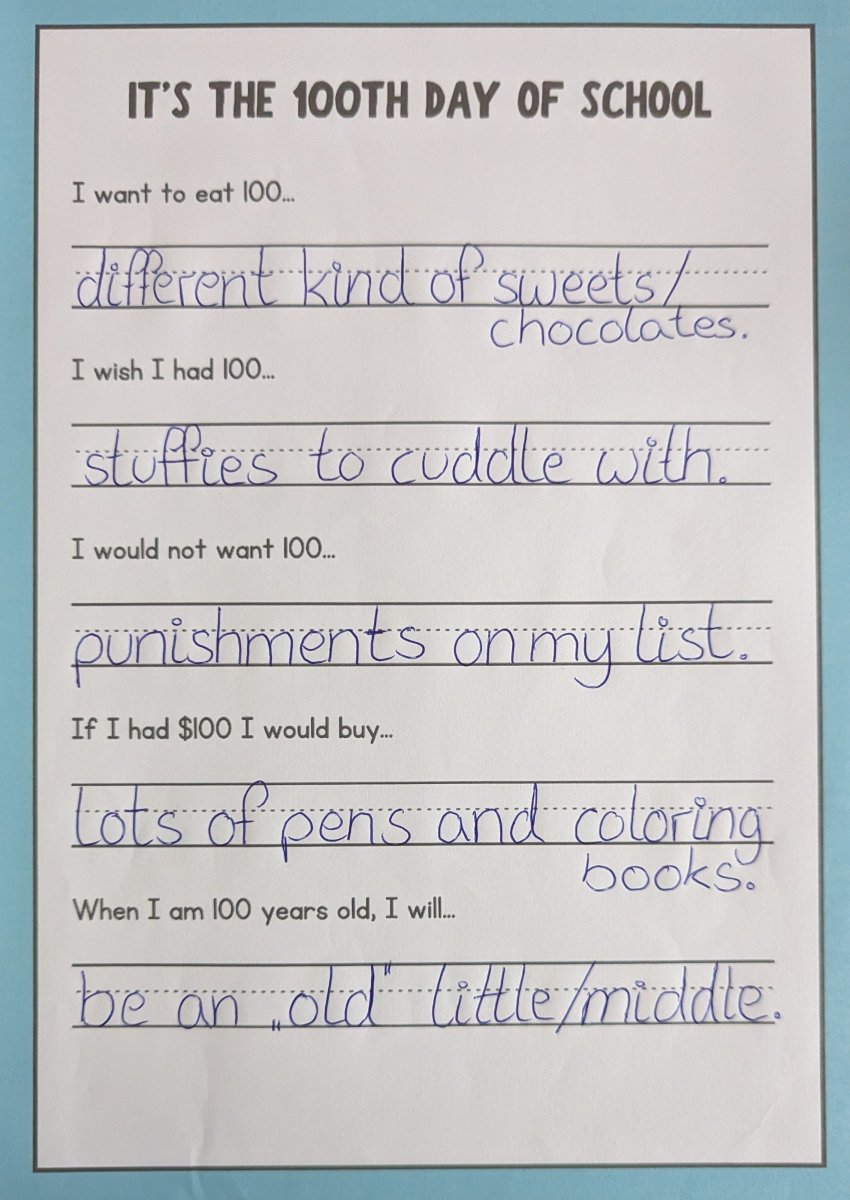 IT'S THE 100TH DAY OF SCHOOL
I want to eat 100...
different kind of sweets/
chocolates.
I wish I had 100...
stuffies to cuddle with.
I would not want 100...
punishments on my list.
If I had $100 I would buy...
lots of pens and coloring
books.
When I am 100 years old, I will...
be an „old" little/middle.